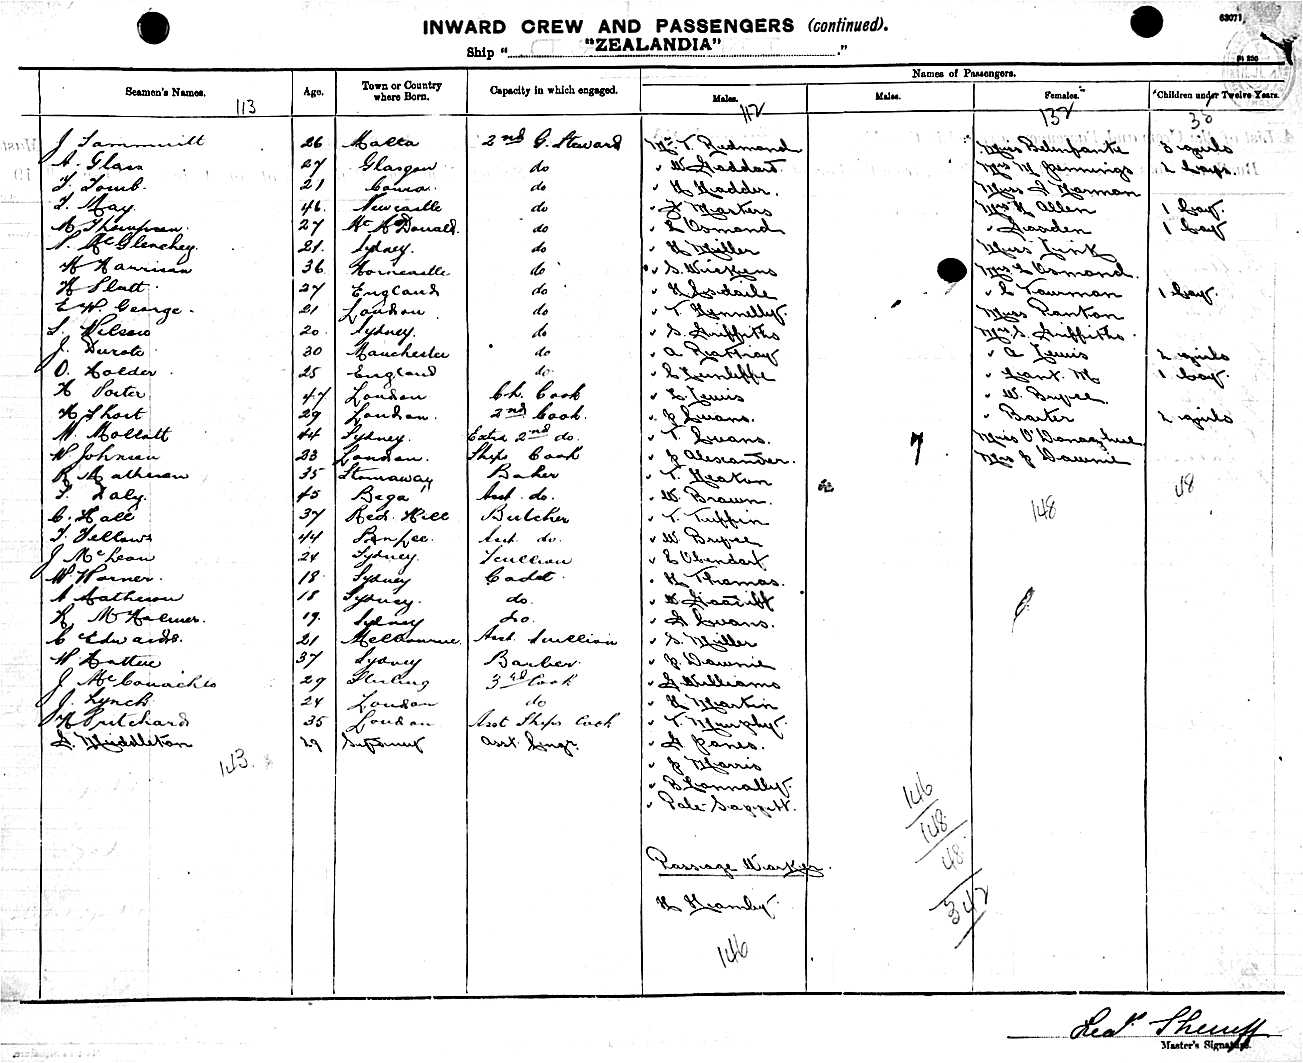 INWARD CREW AND PASSENGERS (continued).
Ship "ZEALANDIA"
63071
Seamen's Names.
113
Age.
Town or Country where Born.
Capacity in which engaged.
Names of Passengers.
Males.
112
Males.
Females.
132
Children under Twelve Years.
38
J 26 Malta 2nd G. Steward
A. Glass 27 Glasgow do
T. Tomb. 21 do
T. May. 46 Newcastle do
A Thompson. 27 do
N McGlenchey. 21. Sydney. do
H Harrison 36 Horncastle do
H Platt. 27 England do
E W George. 21 London do
S. Nelson 20. Sydney. do
J. 30 Manchester do
O. Holder. 25 England do
H Porter 47 London Ch. Cook
H Short 29 London. 2nd Cook.
W. 44 Sydney. Extra 2nd do.
W Johnson 23 London. Ships Cook
R Matheson 35 Stornaway Baker
T. Daly. 45 Bega Asst. do.
C. Hall 37 Red Hill Butcher
T. Fellows 44 Asst. do.
J McLean 24 Sydney Scullion
W Horner. 18 Sydney Cadet.
A Matheson 18 Sydney. do.
H. 19. Sydney do.
C Edwards. 21 Melbourne. Asst. Scullion
W 37 Sydney Barber.
J McConachie 29 Sterling 3rd Cook
J. Lynch. 24 London do
H Pritchard 35 London Asst Ships Cook
S. Middleton 29 Asst. Engr.
143.
Mr T. Redmond
" W Goddard
" H Hadder.
" F Marters
" L Osmond
" H Miller
" S. Wickens
" H Esdaile
" T. Hennelly.
" S. Griffiths
" A Rattray
" E Cunliffe
" E Lewis
" J Evans.
" T. Evans.
" J Alexander.
" T. Heaton
" W. Brown.
" T. Tuffin
" W Bryce
" E Obendorf
" H Thomas.
" W
" H Evans.
" S. Miller
" J Downie
" G Williams
" H Martin
" T. Murphy.
" H Jones.
" J Morris
" B Connolly.
" Pole
Passage Worker.
H
146
7
146
148
48
342
Miss Belinfante 3 girls
Mrs M Jennings 2 boys.
Miss J Harman
Mrs H Allen 1 boy.
" Gooden 1 boy
Miss Tink
Mrs L Osmond.
" E 1 boy.
Miss Ranton
Mrs S. Griffiths
" A Lewis 2 girls
" Cant. M 1 boy.
" W. Bryce.
" Baxter 2 girls
Miss O'Donoghue
Mrs J Downie
148
48
Master's Signature.